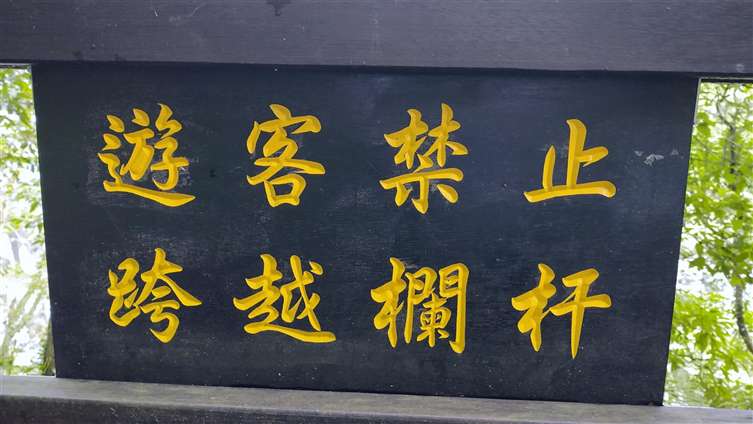 遊客禁止
跨越欄杆